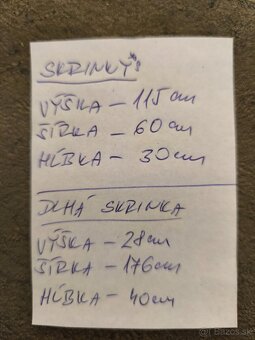 SKRINKY:
VÝŠKA - 115 cm
ŠÍRKA - 60 cm
HĹBKA - 30 cm
DLHÁ SKRINKA
VÝŠKA - 28 cm
ŠÍRKA - 176 cm
HĹBKA - 40 cm